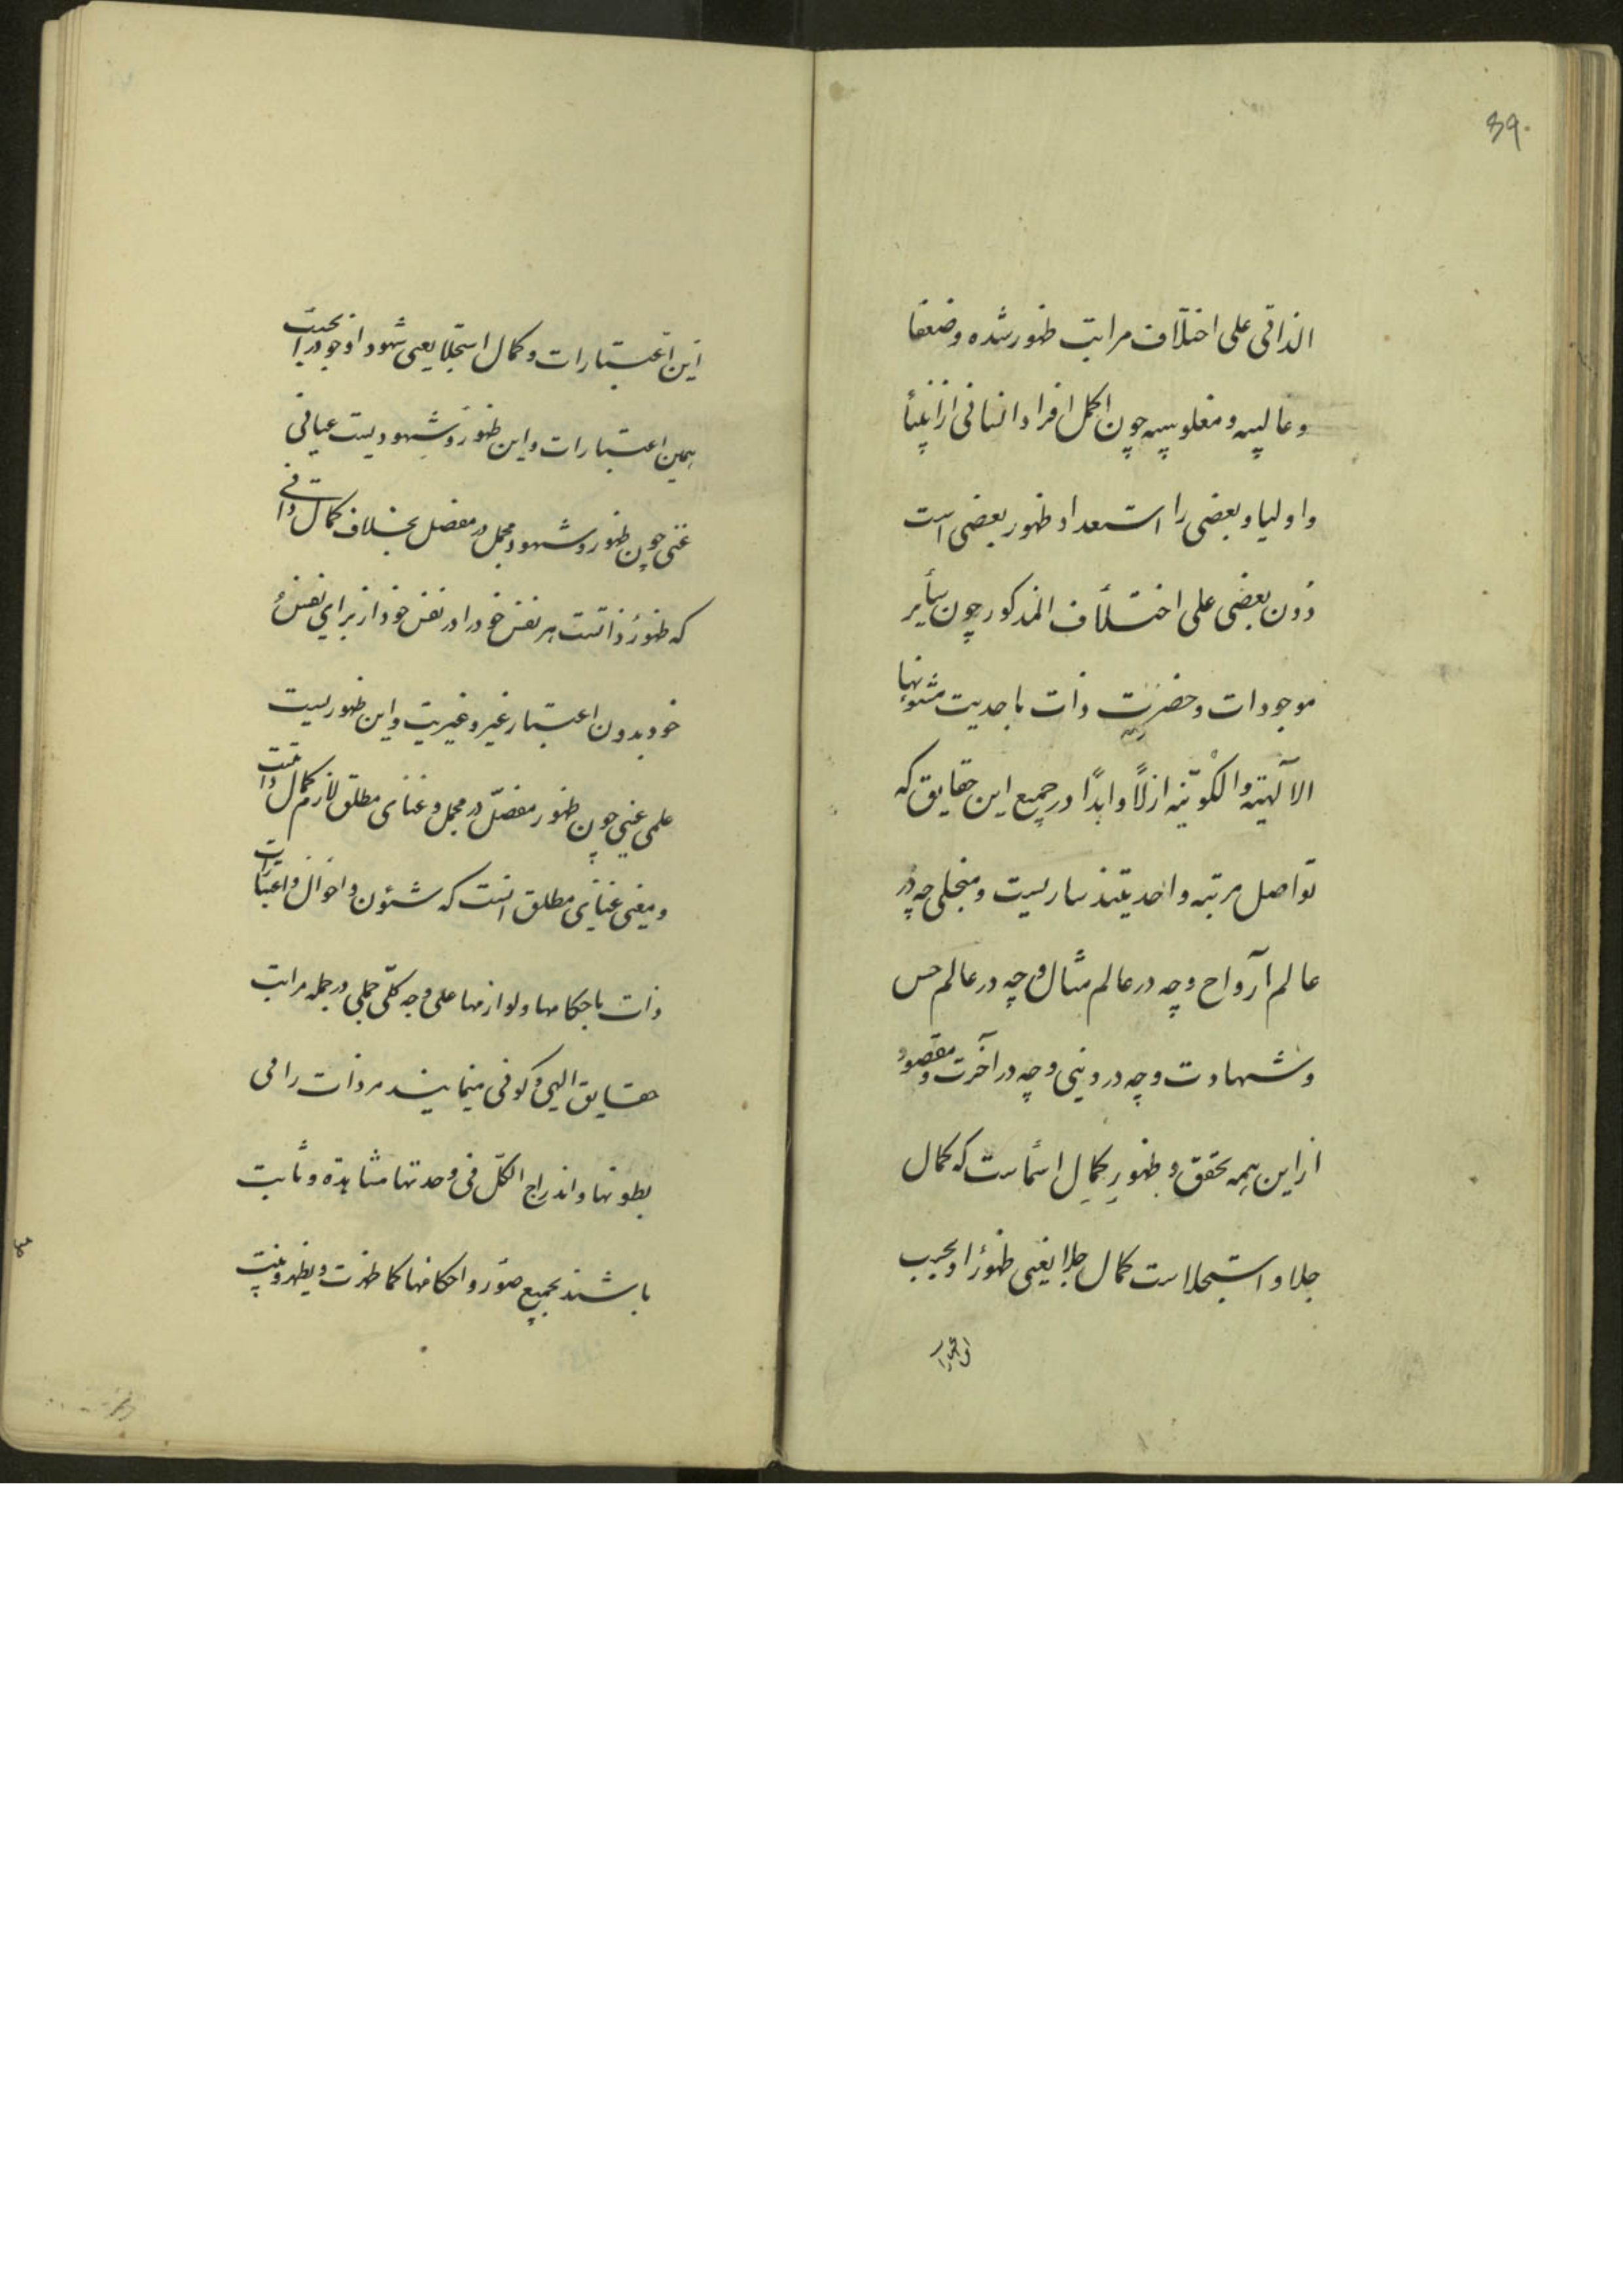 39.
الذاتی علی اختلاف مراتب ظهور شده وضعفا
وغالبیه ومغلوبیه چون کمل افراد انسانی از انبیأ
واولیا وبعضی را استعداد ظهور بعضی است
دون بعضی علی اختلأف المذکور چون سأیر
موجودات وحضرت ذات باحدیت شئونها
الآلهیة والکونیه ازلاً وابدًا در جمیع این حقایق که
تواصل مرتبه واحدیتند ساریست ومتجلی چه در
عالم آرواح وچه در عالم مثال وچه در عالم حس
وشهادت وچه در دینی وچه در آخرت ومقصود
از این همه تحقق وظهور کمال اسماست که کمال
جلا واستجلاست کمال جلا یعنی ظهور او بحسب
این اعتبارات
این اعتبارات وکمال استجلا یعنی شهود او خود را بحسب
همین اعتبارات واین ظهور وشهودیست عیانی
عینی چون ظهور وشهود مجمل در مفصل بخلاف کمال ذاتی
که ظهور ذاتست هر نفس خود را در نفس خود از برای نفس
خود بدون اعتبار غیر وغیریت واین ظهوریست
علمی غیبی چون ظهور مفصّل در مجمل وغنای مطلق لازم کمال ذاتیست
ومعنی غنای مطلق انست که شئون واحوال واعتبارات
ذات باحکامها ولوازمها علی وجه کلّی جملی در جمله مراتب
حقایق الهی وکونی مینمایند مر ذات را فی
بطونها واندراج الکلّ فی وحدتها مشاهده وثابت
باشند بجمیع صور واحکامها کما ظهرت ویظهر وثبت